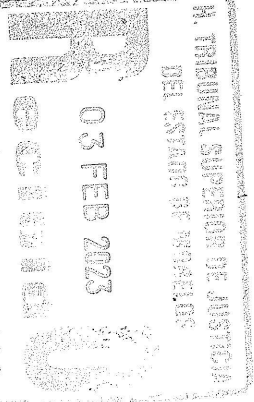 H. TRIBUNAL SUPERIOR DE JUSTICIA
DEL ESTADO DE MORELOS
03 FEB 2023
Recibido